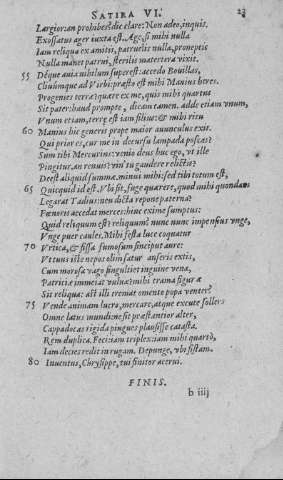 SATIRA VI. 23
Largior: an prohibes? dic clare: Non adeo, inquis.
Exossatus ager iuxta est. Age, si mihi nulla
Iam reliqua ex amitis, patruelis nulla, proneptis
Nulla manet patrui, sterilis matertera vixit.
55 Déque auia nihilum superest: accedo Bouillas,
Cliuúmque ad Virbi: præsto est mihi Manius heres.
Progenies terræ? quære ex me, quis mihi quartus
Sit pater: haud prompte, dicam tamen. adde etiam vnum,
Vnum etiam, terræ est iam filius: & mihi ritu
60 Manius hic generis prope maior auunculus exit.
Qui prior es, cur me in decursu lampada poscas?
Sum tibi Mercurius: venio deus huc ego, vt ille
Pingitur. an renuis? vin' tu gaudere relictis?
Deest aliquid summæ. minui mihi: sed tibi totum est,
65 Quicquid id est. Vbi sit, fuge quærere, quod mihi quondam
Legarat Tadius: neu dicta repone paterna?
Fœnoris accedat merces: hinc exime sumptus:
Quid reliquum est? reliquum? nunc nunc impensius vnge,
Vnge puer caules. Mihi festa luce coquatur
70 Vrtica, & fissa fumosum sinciput aure:
Vt tuus iste nepos olim satur anseris extis,
Cum morosa vago singultiet inguine vena,
Patriciæ immeiat vuluæ? mihi trama figuræ
Sit reliqua: ast illi tremat omento popa venter?
75 Vende animam lucro, mercare, atque excute sollers
Omne latus mundi: ne sit præstantior alter,
Cappadocas rigida pingues plausisse catasta.
Rem duplica. Feci: iam triplex: iam mihi quartò,
Iam decies redit in rugam. Depunge, vbi sistam.
80 Inuentus, Chrysippe, tui finitor acerui.
FINIS.
b iiij